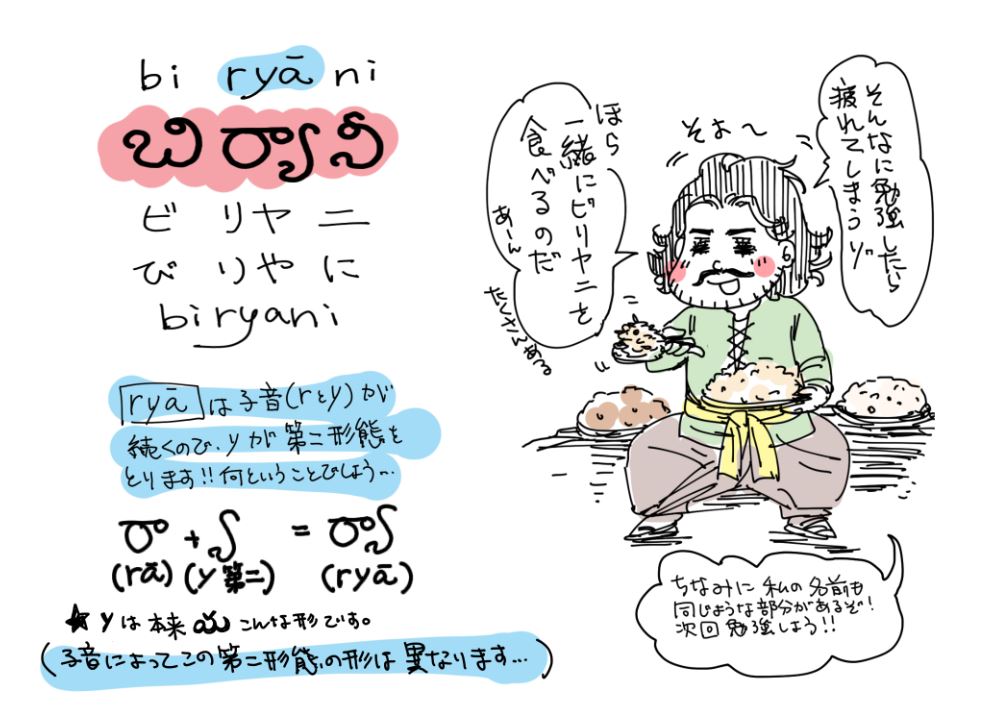 bi ryā ni
బిర్యానీ
ビ リヤ ニ
び りや に
biryani
ryā は子音(rとy)が
続くので、yが第二形態を
とります!!何ということでしょう…
రా + ్య = ర్యా
(rā) (y 第二) (ryā)
★ yは本来 య こんな形です。
(子音によってこの第二形態の形は異なります…)
そんなに勉強したら
疲れてしまうゾ
そぉ〜
ほら
一緒にビリヤニを
食べるのだ
あーん
たくさんある
ちなみに私の名前も
同じような部分があるぞ!
次回勉強しよう!!